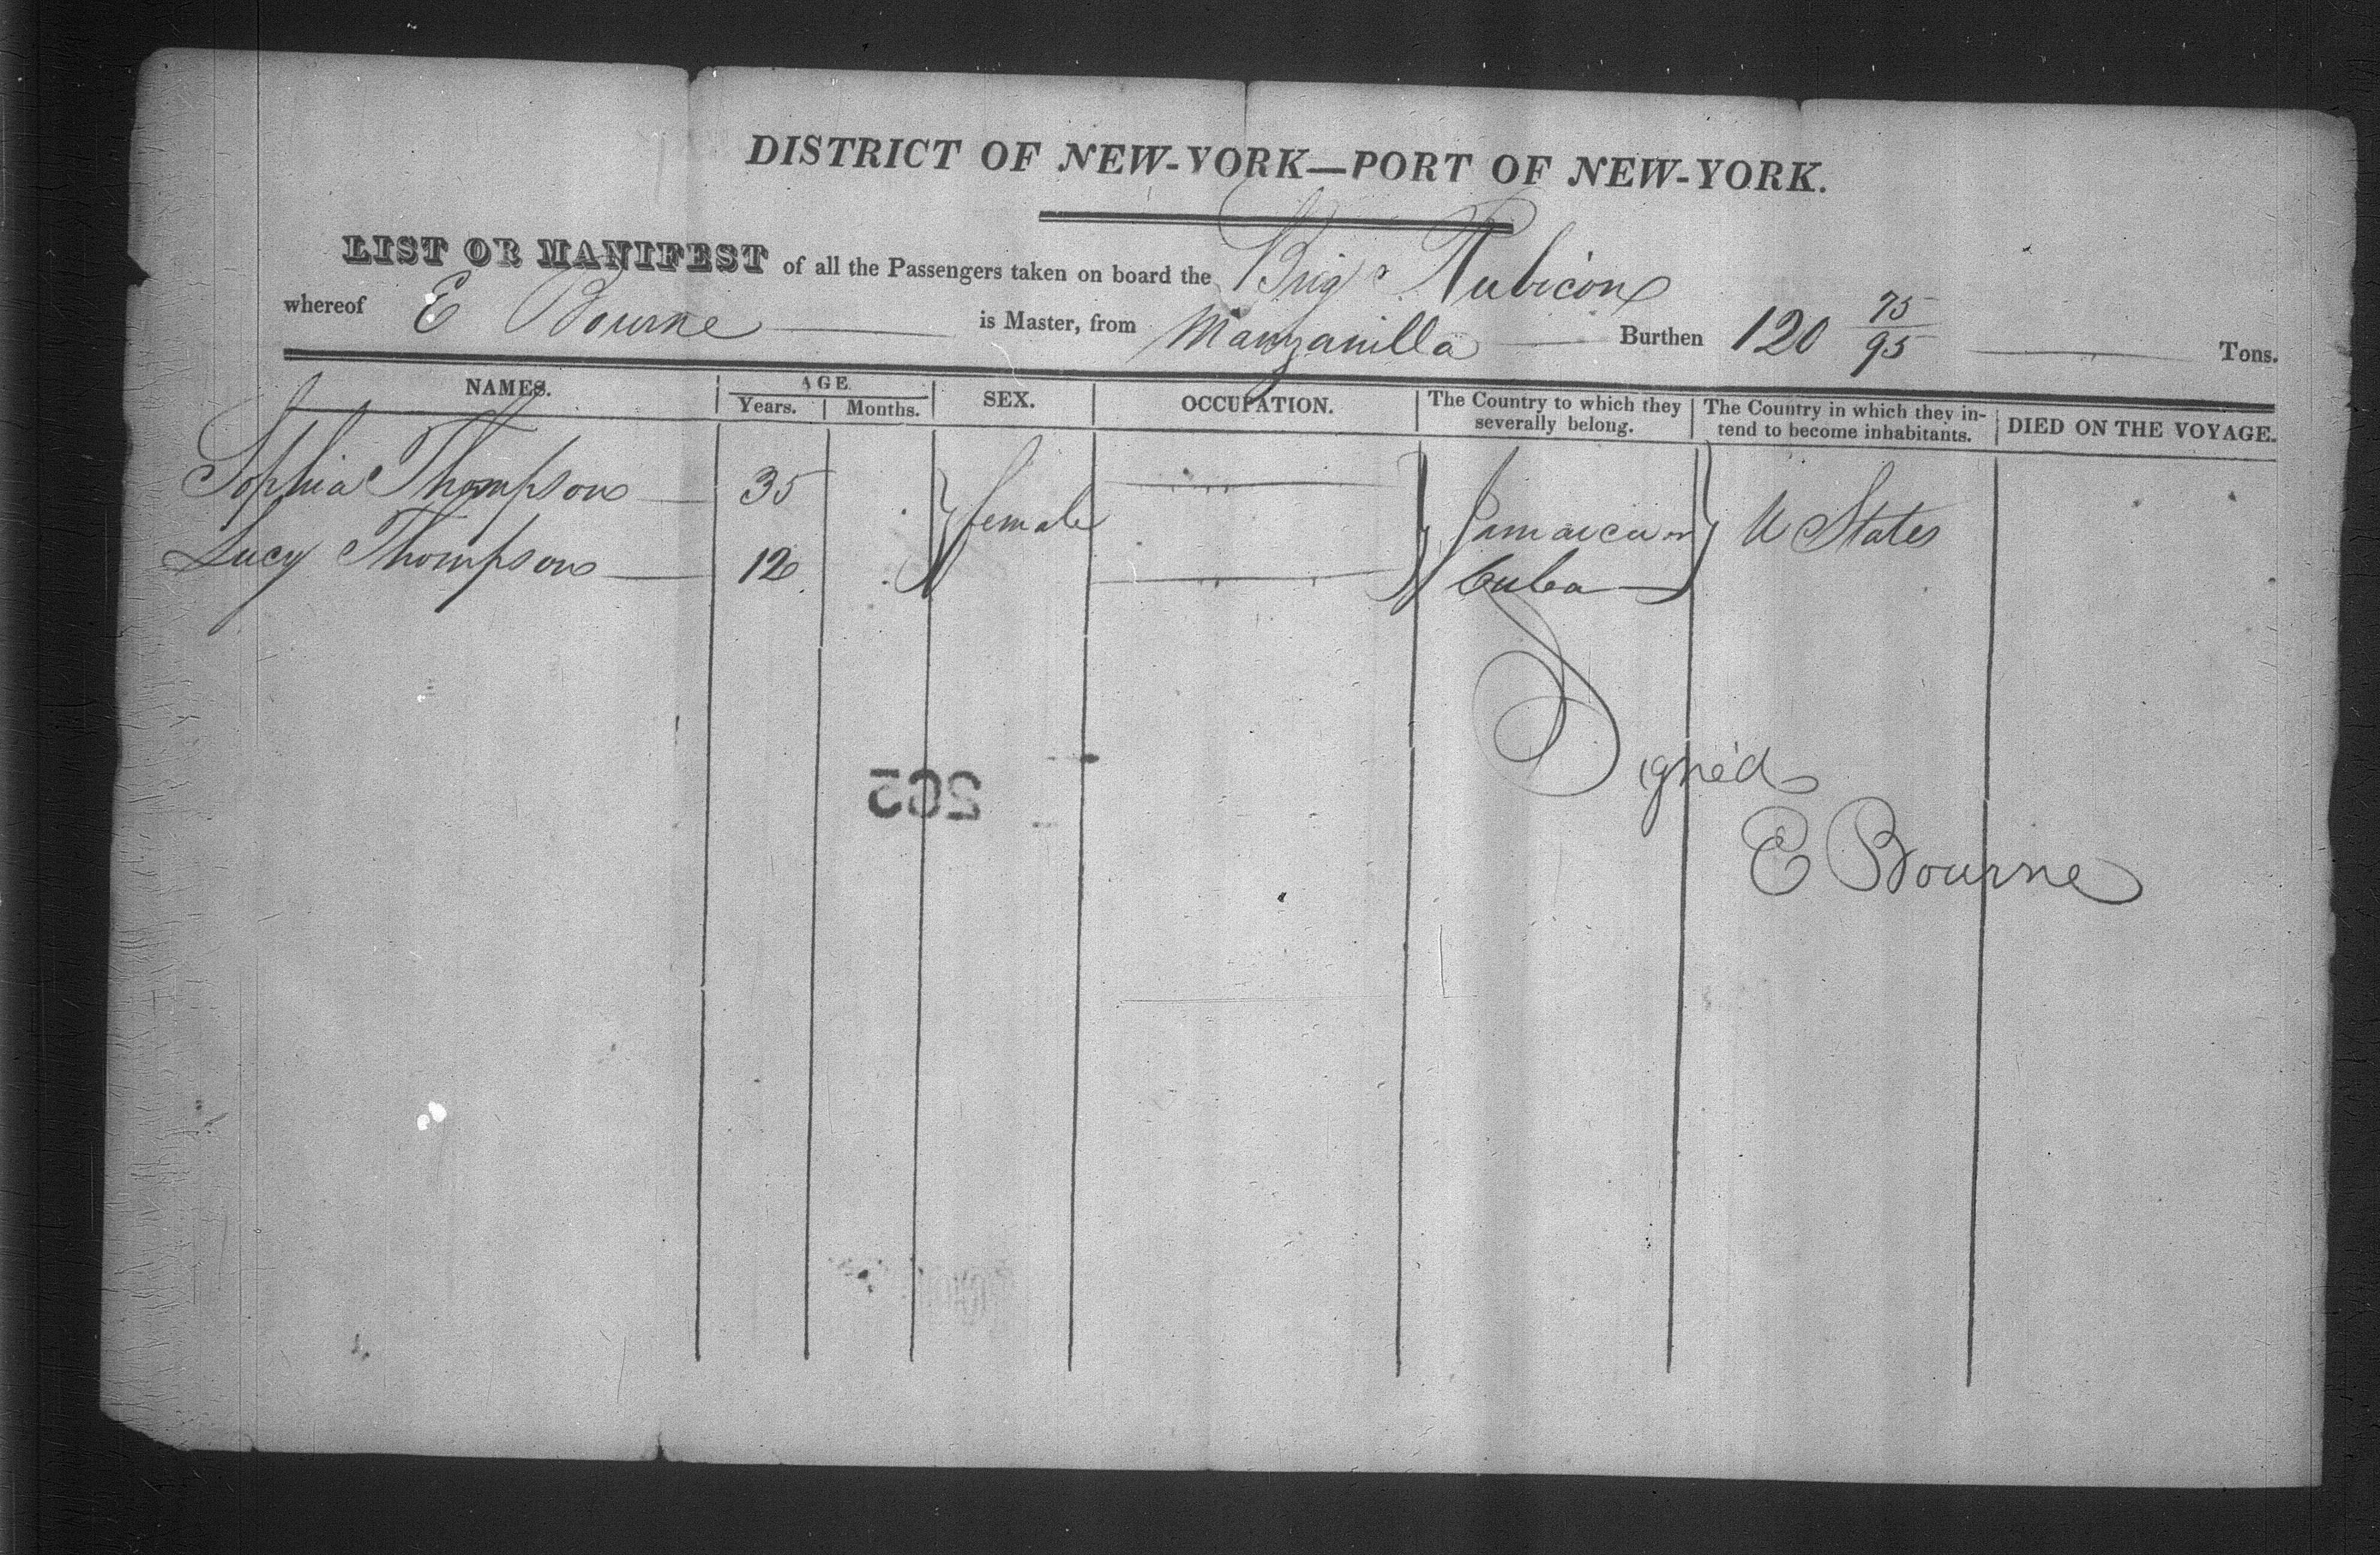 DISTRICT OF NEW-YORK—PORT OF NEW-YORK.
LIST OR MANIFEST of all the Passengers taken on board the Brig Rubicon
whereof E Bourne is Master, from Manzanilla Burthen 120 75/95 Tons.
NAMES. AGE. SEX. OCCUPATION. The Country to which they severally belong. The Country in which they intend to become inhabitants. DIED ON THE VOYAGE.
Years. Months.
Sophia Thompson 35 female Jamaica or U States
Lucy Thompson 12 Cuba
262
Signed
E Bourne